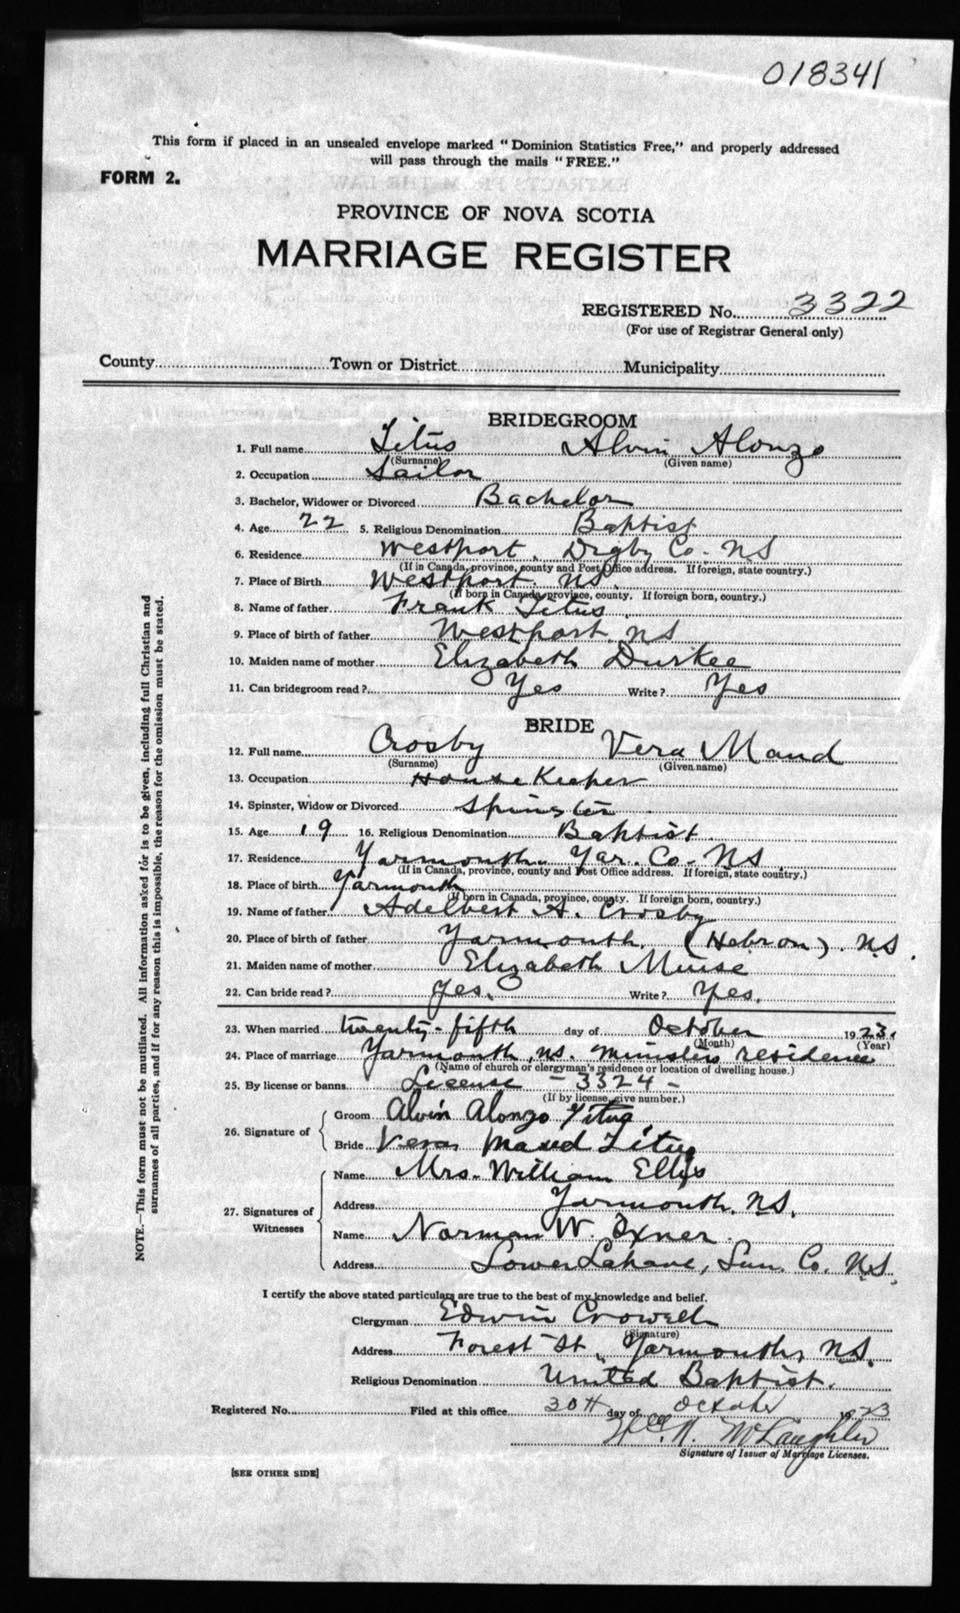 018341
This form if placed in an unsealed envelope marked "Dominion Statistics Free," and properly addressed
will pass through the mails "FREE."
FORM 2.
PROVINCE OF NOVA SCOTIA
MARRIAGE REGISTER
REGISTERED No. 3322
(For use of Registrar General only)
County Town or District Municipality
BRIDEGROOM
1. Full name Titus Alvin Alonzo
(Surname) (Given name)
2. Occupation Sailor
3. Bachelor, Widower or Divorced Bachelor
4. Age 22 5. Religious Denomination Baptist
6. Residence Westport, Digby Co. NS
(If in Canada, province, county and Post Office address. If foreign, state country.)
7. Place of Birth Westport. NS.
(If born in Canada, province, county. If foreign born, country.)
8. Name of father Frank Titus
9. Place of birth of father Westport. NS
10. Maiden name of mother Elizabeth Durkee
11. Can bridegroom read? Yes Write? Yes
BRIDE
12. Full name Crosby Vera Maud
(Surname) (Given name)
13. Occupation House Keeper
14. Spinster, Widow or Divorced Spinster
15. Age 19 16. Religious Denomination Baptist.
17. Residence Yarmouth. Yar. Co. NS
(If in Canada, province, county and Post Office address. If foreign, state country.)
18. Place of birth Yarmouth
(If born in Canada, province, county. If foreign born, country.)
19. Name of father Adelbert A. Crosby
20. Place of birth of father Yarmouth. (Hebron). N.S.
21. Maiden name of mother Elizabeth Muise
22. Can bride read? Yes. Write? Yes.
23. When married twenty-fifth day of October 1923.
(Month) (Year)
24. Place of marriage Yarmouth, NS. Ministers residence
(Name of church or clergyman's residence or location of dwelling house.)
25. By license or banns License - 3324 -
(If by license, give number.)
26. Signature of Groom Alvin Alonzo Titus
Bride Vera Maud Titus
27. Signatures of Witnesses Name Mrs. William Ellis
Address Yarmouth. N.S.
Name Norman W. Oxner
Address Lower Lahave, Lun. Co. N.S.
I certify the above stated particulars are true to the best of my knowledge and belief.
Clergyman Edwin Crowell
(Signature)
Address Forest St., Yarmouth, N.S.
Religious Denomination United Baptist.
Registered No. Filed at this office 30th day of October 1923
N. McLaughlin
Signature of Issuer of Marriage Licenses.
[SEE OTHER SIDE]
NOTE.—This form must not be mutilated. All information asked for is to be given, including full Christian and
surnames of all parties, and if for any reason this is impossible, the reason for the omission must be stated.